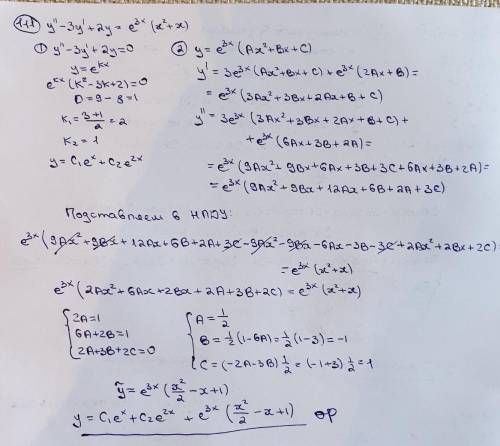 111 y'' - 3y' + 2y = e^{3x} (x² + x)
① y'' - 3y' + 2y = 0
y = e^{kx}
e^{kx} (k² - 3k + 2) = 0
D = 9 - 8 = 1
k₁ = (3+1)/2 = 2
k₂ = 1
y = C₁e^x + C₂e^{2x}
② y = e^{3x} (Ax² + Bx + C)
y' = 3e^{3x} (Ax² + Bx + C) + e^{3x} (2Ax + B) =
= e^{3x} (3Ax² + 3Bx + 2Ax + B + C)
y'' = 3e^{3x} (3Ax² + 3Bx + 2Ax + B + C) +
+ e^{3x} (6Ax + 3B + 2A) =
= e^{3x} (9Ax² + 9Bx + 6Ax + 3B + 3C + 6Ax + 3B + 2A) =
= e^{3x} (9Ax² + 9Bx + 12Ax + 6B + 2A + 3C)
Подставляем в НЛДУ:
e^{3x} (9Ax² + 9Bx + 12Ax + 6B + 2A + 3C - 9Ax² - 9Bx - 6Ax - 3B - 3C + 2Ax² + 2Bx + 2C)
= e^{3x} (x² + x)
e^{3x} (2Ax² + 6Ax + 2Bx + 2A + 3B + 2C) = e^{3x} (x² + x)
{ 2A = 1
6A + 2B = 1
2A + 3B + 2C = 0
{ A = 1/2
B = 1/2 (1 - 6A) = 1/2 (1 - 3) = -1
C = (-2A - 3B) 1/2 = (-1 + 3) 1/2 = 1
ỹ = e^{3x} (x²/2 - x + 1)
y = C₁e^x + C₂e^{2x} + e^{3x} (x²/2 - x + 1) ор